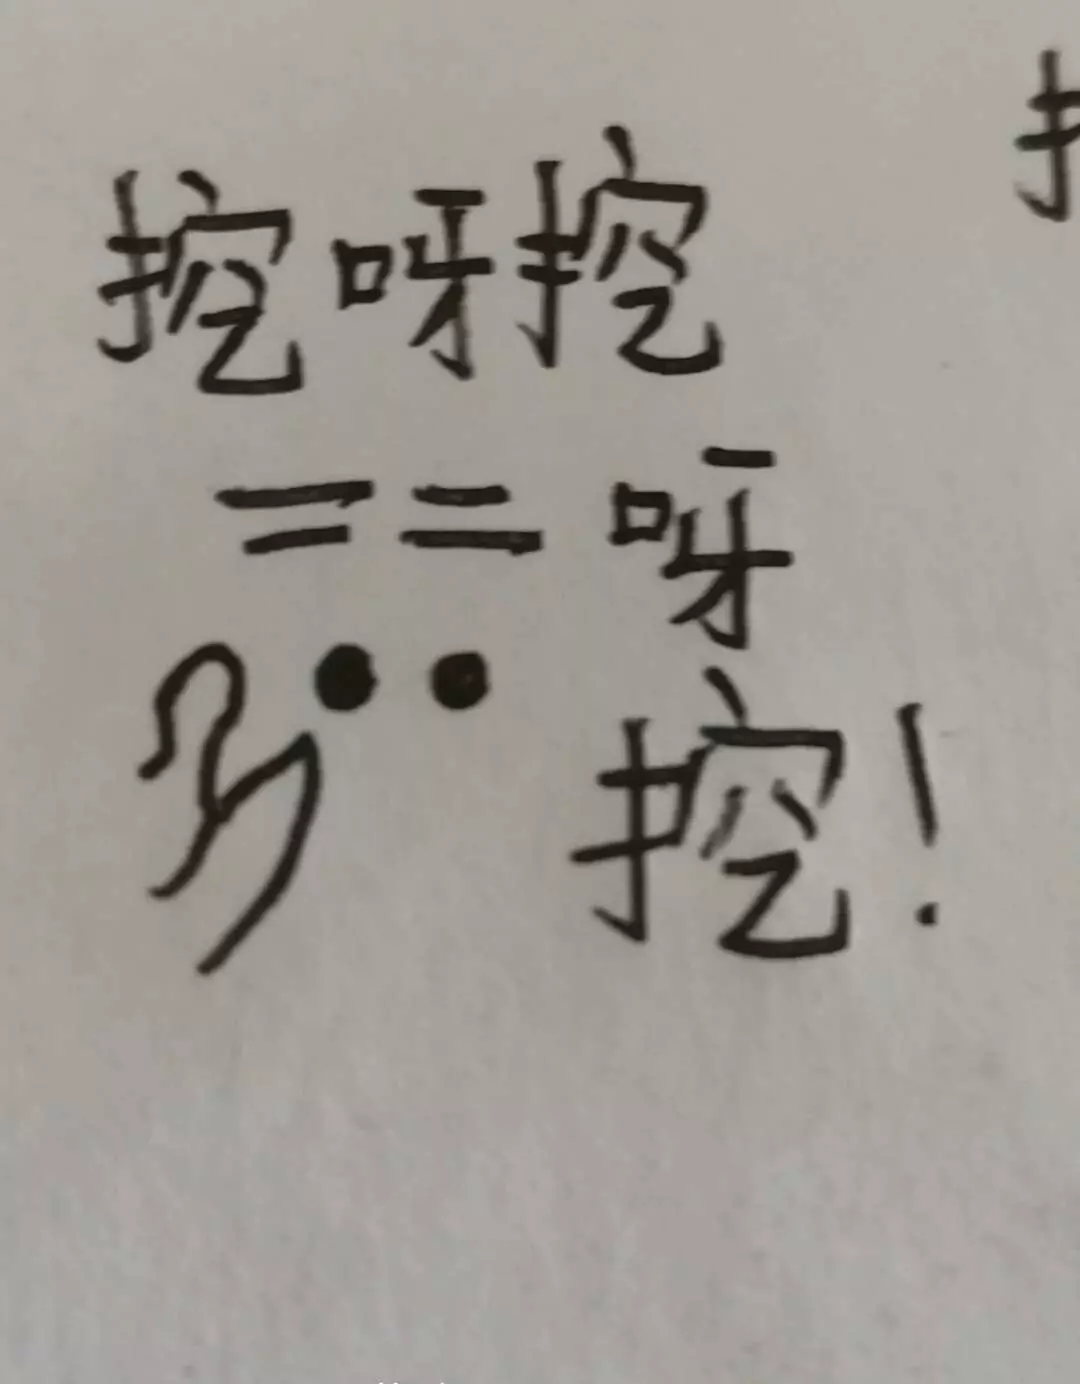 挖呀挖
呀
挖!